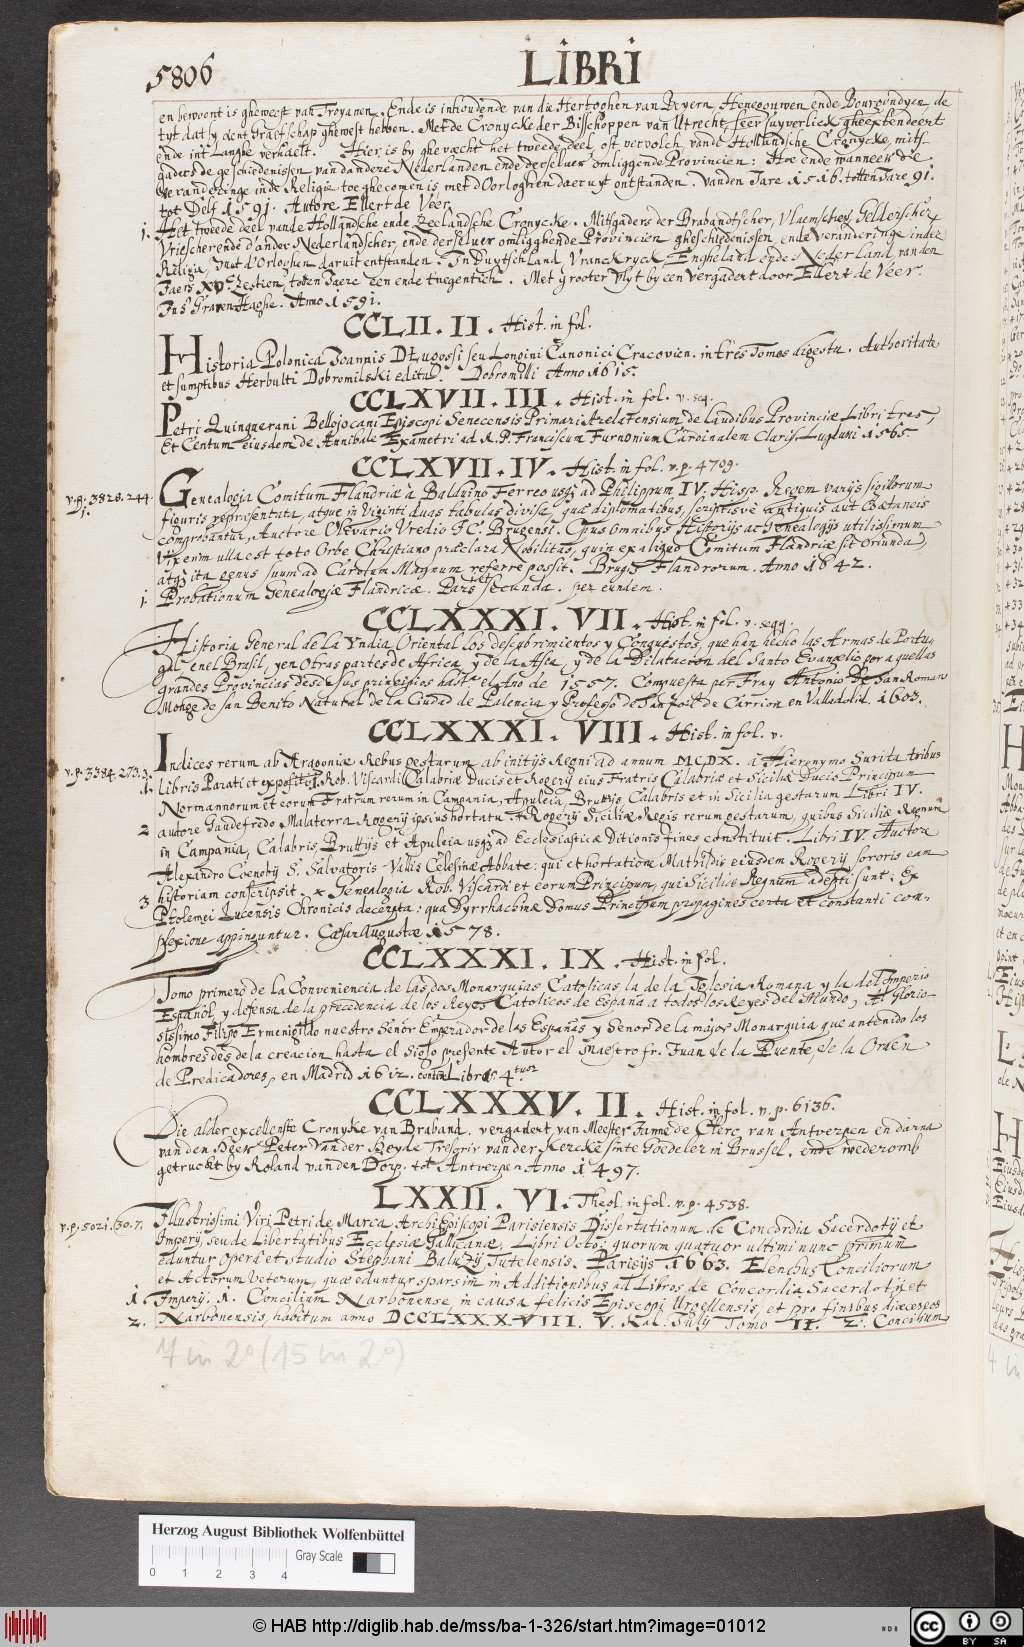 5806
LIBRI
en bewoont is gheweest van Troyanen. Ende is inhoudende van die Hertoghen van Beyern Henegouwen ende Bourgondyen, de
tyt dat sy dent Graefschap ghewest hebben. Met de Cronycke der Bisschoppen van Utrecht, seer suyverlick gheextendeert
ende int Langhe verhaelt. Hier is by ghevoecht het tweede deel oft vervolch vande Hollandsche Cronycke, mits
gaders de geschiedenissen van dandere Nederlanden ende derselver omliggende Provincien: Hoe ende wanneer die
veranderinge inde Religie toeghecomen is met d'Oorloghen daer uyt ontstanden. Vanden Jare 1516. totten Jare 91.
tot Delf 1591. Autore Ellert de Veer.
1. Het tweede deel vande Hollandsche ende Zeelandsche Cronycke. Mitsgaders der Brabandtscher, Vlaemscher, Gelderscher
Vriescher ende d'ander Nederlandscher, ende derselver omligghende Provincien gheschiedenissen, ende veranderinge indie
Religia, met d'Orloghen daruit entstanden. In Duytschland, Vranckryck Enghelandt ende Nederland, van den
Jaers XVc. Zestien, toten Jaere een ende tnegentich. Met grooter vlyt by een vergadert door Ellert de Veer.
Ins GravenHaghe. Anno 1591.
CCLII. II. Hist. in fol.
Historia Polonica Joannis Dlugossi seu Longini Canonici Cracovien. in tres Tomos digesta. Authoritate
et sumptibus Herbulti Dobromilski edita. Dobromilli Anno 1615.
CCLXVII. III. Hist. in fol. v. seq.
Petri Quinquerani Bellojocani Episcopi Senecensis Primarii Arelatensium de laudibus Provinciæ Libri tres,
Et Centum eiusdem de Annibale Exametri ad R. P. Franciscum Furnonium Cardinalem Clariss. Lugduni 1565.
CCLXVII. IV. Hist. in fol. v. p. 4709.
v. p. 3828. 244.
1.
Genealogia Comitum Flandriæ à Balduino Ferreo usq; ad Philippum IV. Hisp. Regem varijs sigillorum
figuris repræsentata, atque in Viginti duas tabulas divisa, quæ diplomatibus, scriptisve antiquis aut Coætaneis
comprobantur, Auctore Olivario Vredio JC. Brugensi. Opus omnibus Historijs ac Genealogijs utilissimum
Vix enim ulla est toto Orbe Christiano præclara Nobilitas, quin ex aliquo Comitum Flandriæ sit oriunda,
atq; ita genus suum ad Carolum Magnum referre possit. Brugis Flandrorum. Anno 1642.
1. Probationum Genealogiæ Flandricæ. Pars secunda. per eundem.
CCLXXXI. VII. Hist. in fol. v. seqq.
Historia General de la Yndia Oriental los descubrimientos y Conquestos, que han hecho las Armas de Portu-
gal, en el Brasil, y en Otras partes de Africa, y de la Asia, y de la Dilatacion del Santo Evangelio por aquellas
grandes Provincias desde sus principios hasta el Año de 1557. Compuesta por Fray Antonio De San Roman
Monge de san Benito Natural de la Ciudad de Palencia y Professo de San Zoil de Carrion en Valladolid. 1603.
CCLXXXI. VIII. Hist. in fol. v.
v. p. 3384. 273. 3.
Indices rerum ab Aragoniæ Rebus gestarum ab initijs Regni ad annum MCDX. à Hieronymo Surita tribus
1. libris Parati et expositi. Rob. Viscardi Calabriæ Ducis et Rogerij eius Fratris Calabriæ et Siciliæ Ducis Principum
Normannorum et eorum Fratrum rerum in Campania, Apuleia, Bruttijs, Calabris et in Sicilia gestarum Libri IV.
2 autore Gaudefredo Malaterra Rogerij ipsius hortatu + Rogerij Siciliæ Regis rerum gestarum, quibus Siciliæ Regnum
in Campania, Calabris, Bruttijs et Apuleia usq; ad Ecclesiasticæ Ditionis fines constituit. Libri IV. Auctore
Alexandro Cœnobij S. Salvatoris Vallis Celesinæ Abbate: qui et hortatione Mathildis eiusdem Rogerij sororis eam
3 historiam conscripsit. x Genealogia Rob. Viscardi et eorum Principum, qui Siciliæ Regnum adepti sunt: Ex
Ptolemei Lucensis Chronicis decerpta: qua Dyrrhachinæ Domus Principum propagines certa et constanti com-
plexione appinguntur. Cæsaraugustæ 1578.
CCLXXXI. IX. Hist. in fol.
Tomo primero de la Conveniencia de las dos Monarquias Catolicas la de la Iglesia Romana y la del Imperio
Español, y defensa de la precedencia de los Reyes Catolicos de España a todos los Reyes del Mundo, Al Glorio-
sissimo Filipo Ermenigildo nuestro Señor Emperador de las Españas y Senor de la major Monarquia que an tenido los
hombres desde la creacion hasta el Siglo presente Autor el Maestro fr. Juan de la Puente de la Orden
de Predicadores, en Madrid 1612. contin Libros 4tuor
CCLXXXV. II. Hist. in fol. v. p. 6136.
Die alder excellenste Cronyke van Braband. vergadert van Meester Jame de Clerc van Antverpen en danna
van den Heer Peter Van der Heyde Tresorir van der Kercke sinte Goedelen in Brussel. ende wederomb
getruckt by Roland van den Dorp. tot Antverpen Anno 1497.
LXXII. VI. Theol. in fol. v. p. 4538.
v. p. 5021. 630. 7.
Illustrissimi Viri Petri de Marca Archi Episcopi Parisiensis Dissertationum de Concordia Sacerdotij et
Imperij, seu de Libertatibus Ecclesiæ Gallicanæ, Libri Octo: quorum quatuor ultimi nunc primum
eduntur operâ et studio Stephani Baluzij Tutelensis. Parisijs 1663. Elenchus Conciliorum
et Actorum Veterum, quæ eduntur sparsim in Additionibus ad Libros de Concordia Sacerdotij et
1. Imperij: 1. Concilium Narbonense in causa felicis Episcopi Urgellensis, et pro finibus diœceseos
2. Narbonensis, habitum anno DCCLXXXVIII. V. Kal. Julij Tomo II. 2. Concilium
7 in 2° (15 in 2°)
Herzog August Bibliothek Wolfenbüttel
Gray Scale
0 1 2 3 4
© HAB http://diglib.hab.de/mss/ba-1-326/start.htm?image=01012
cc BY SA